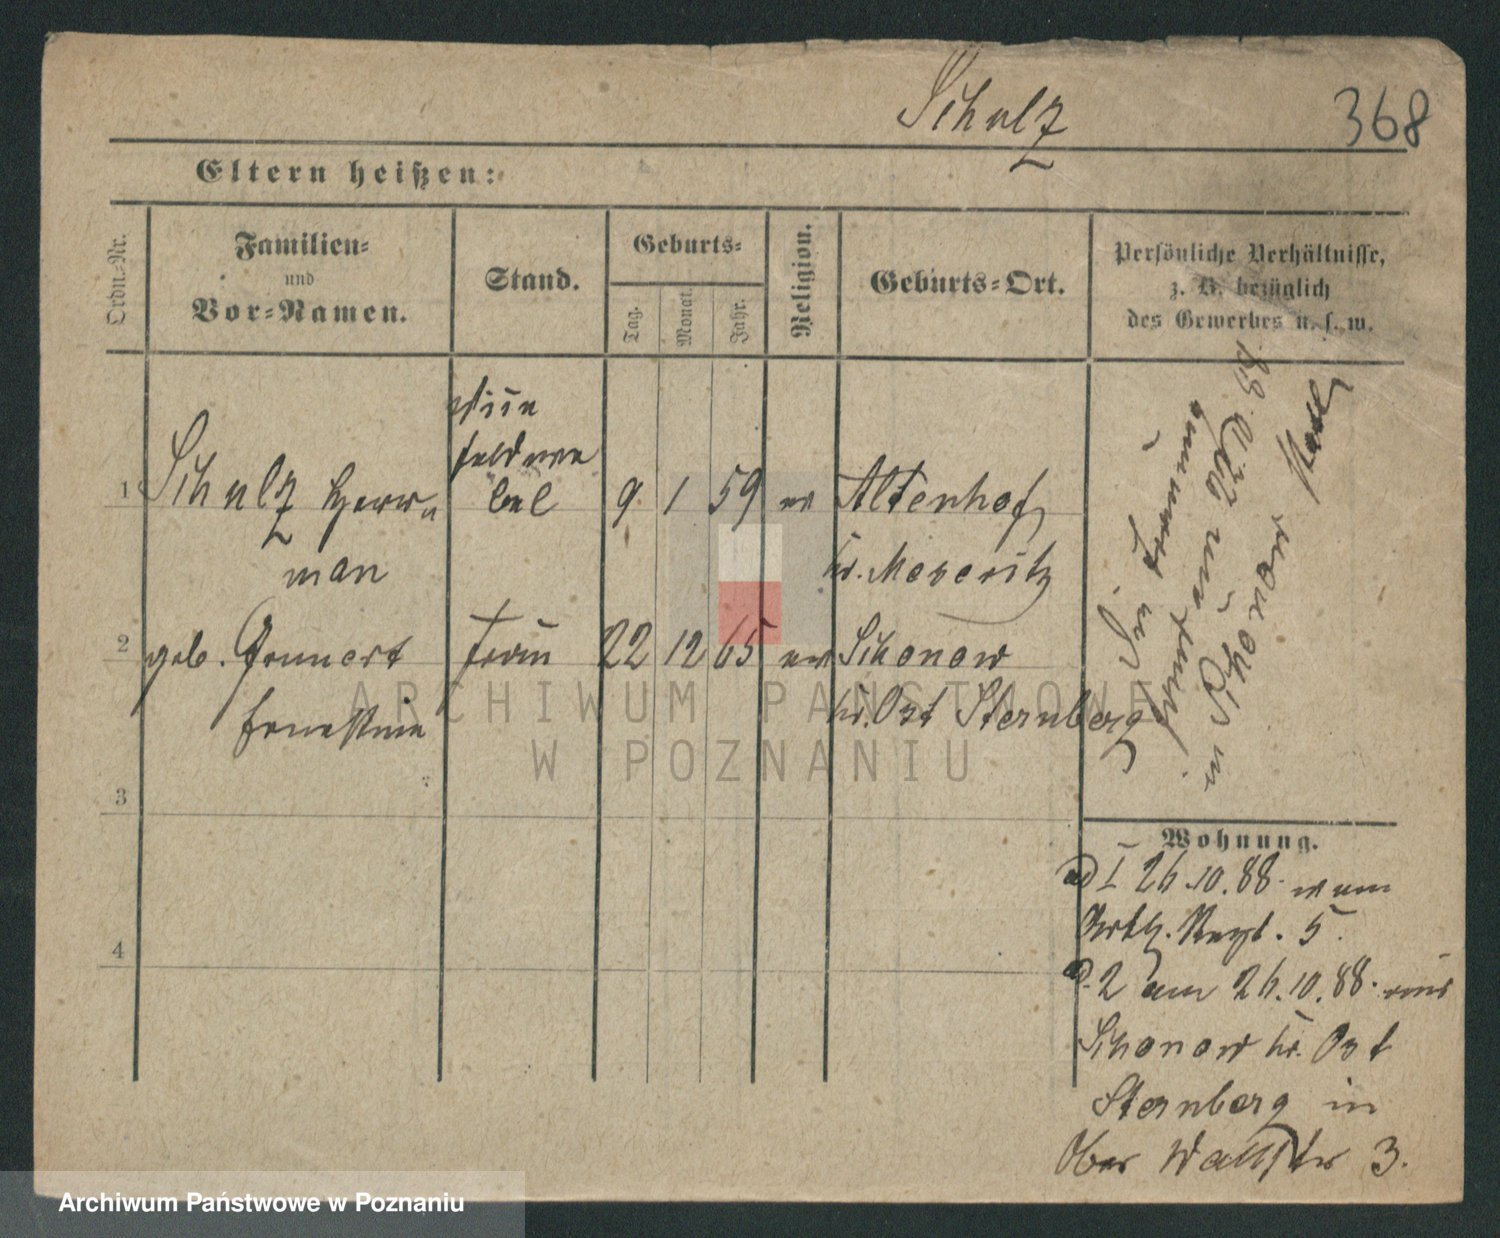 Schulz
368
Eltern heißen:
Ordn.-Nr.
Familien-
und
Vor-Namen.
Stand.
Geburts-
Tag.
Monat.
Jahr.
Religion.
Geburts-Ort.
Persönliche Verhältnisse,
z. B. bezüglich
des Gewerbes u. s. w.
1 Schulz Herr- Vice feldwe bel 9 1 59 ev Altenhof
man Kr. Meseritz
2 geb. Ernestine Frau 22 12 65 ev Schonow
Kr. Ost Sternberg
3
4
in Schonow
Wohnung.
ad 1 26.10.88. vom
Artl. Regt. 5.
ad. 2 am 26.10.88. aus
Schonow Kr. Ost
Sternberg in
Ober Wallstr 3.
ARCHIWUM PAŃSTWOWE
W POZNANIU
Archiwum Państwowe w Poznaniu